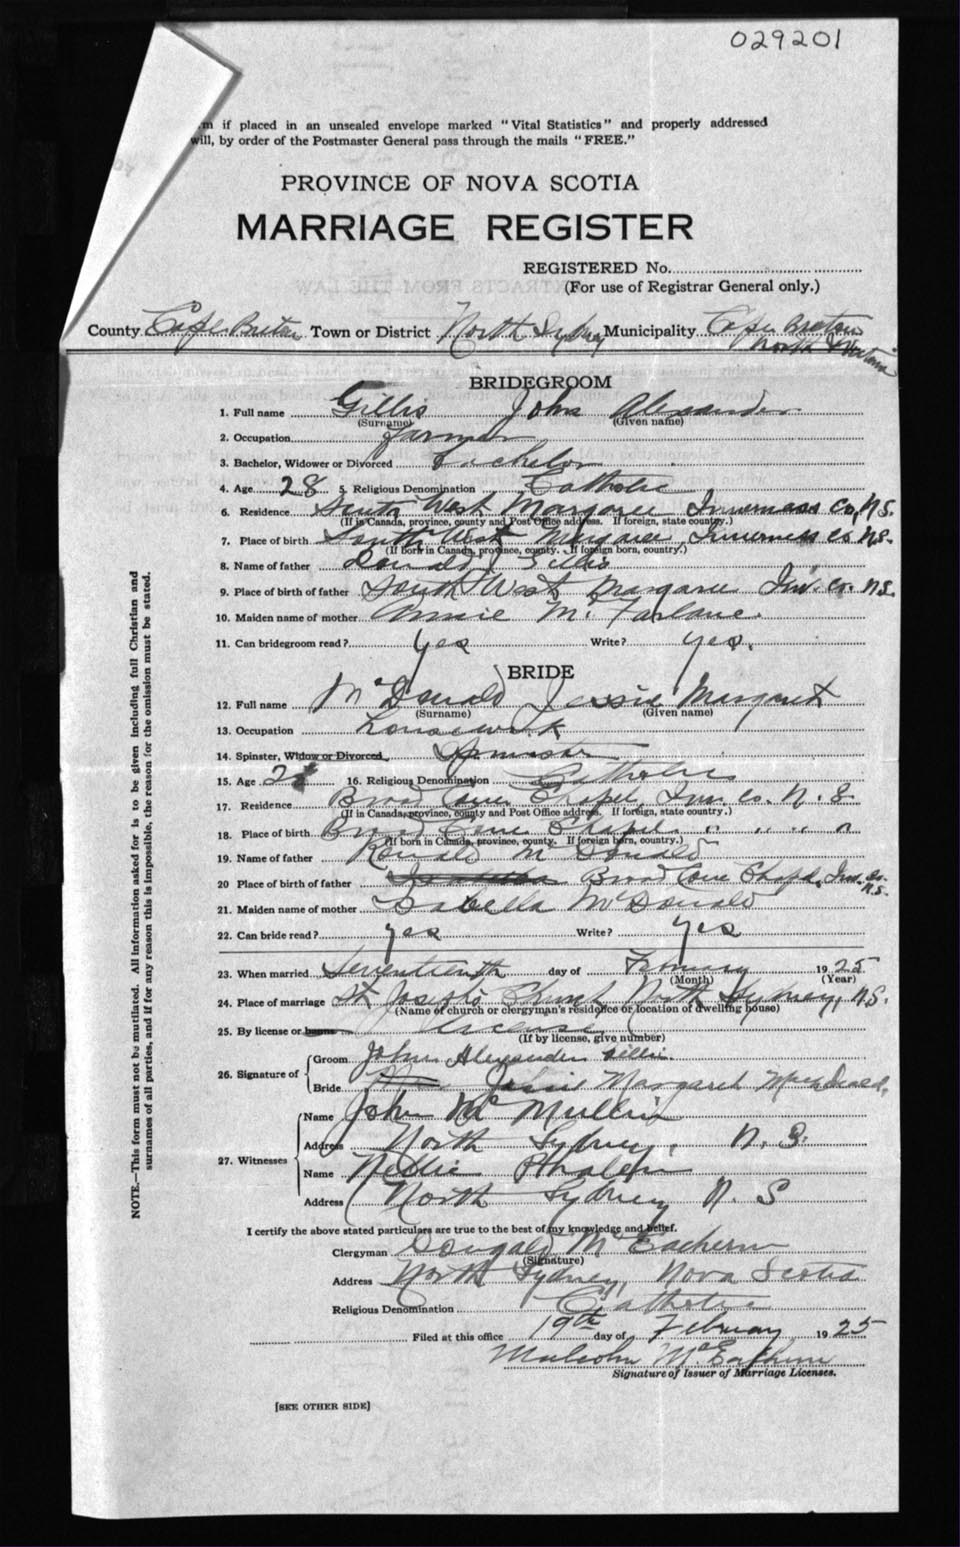 029201
m if placed in an unsealed envelope marked "Vital Statistics" and properly addressed
will, by order of the Postmaster General pass through the mails "FREE."
PROVINCE OF NOVA SCOTIA
MARRIAGE REGISTER
REGISTERED No.
(For use of Registrar General only.)
County Cape Breton Town or District North Sydney Municipality Cape Breton
North
BRIDEGROOM
1. Full name Gillis John Alexander
(Surname) (Given name)
2. Occupation farmer
3. Bachelor, Widower or Divorced Bachelor
4. Age 28 5. Religious Denomination Catholic
6. Residence South West Margaree Inverness Co, N.S.
(If in Canada, province, county and Post Office address. If foreign, state country.)
7. Place of birth South West Margaree, Inverness Co N.S.
(If born in Canada, province, county. If foreign born, country.)
8. Name of father Donald J Gillis
9. Place of birth of father South West Margaree Inv. Co. N.S.
10. Maiden name of mother Annie McFarlane
11. Can bridegroom read? yes Write? yes.
BRIDE
12. Full name McDonald Jessie Margaret
(Surname) (Given name)
13. Occupation housework
14. Spinster, Widow or Divorced Spinster
15. Age 16. Religious Denomination Catholic
17. Residence Broad Cove Chapel, Inv. Co. N.S.
(If in Canada, province, county and Post Office address. If foreign, state country.)
18. Place of birth Broad Cove Chapel " " " "
(If born in Canada, province, county. If foreign born, country.)
19. Name of father Ronald McDonald
20 Place of birth of father Broad Cove Chapel, Inv. Co.
N.S.
21. Maiden name of mother Isabella McDonald
22. Can bride read? yes Write? yes
23. When married Seventeenth day of February 1925
(Month) (Year)
24. Place of marriage St Joseph's Church North Sydney, N.S.
(Name of church or clergyman's residence or location of dwelling house)
25. By license or banns License
(If by license, give number)
26. Signature of
Groom John Alexander Gillis.
Bride Jessie Margaret MacDonald.
27. Witnesses
Name John McMullin
Address North Sydney, N.S.
Name Nellie Phalen
Address North Sydney N.S
I certify the above stated particulars are true to the best of my knowledge and belief.
Clergyman Dougald McEachern
(Signature)
Address North Sydney, Nova Scotia
Religious Denomination Catholic
Filed at this office 19th day of February 1925
Malcolm McEachern
Signature of Issuer of Marriage Licenses.
[SEE OTHER SIDE]
NOTE.—This form must not be mutilated. All information asked for is to be given including full Christian and
surnames of all parties, and if for any reason this is impossible, the reason for the omission must be stated.